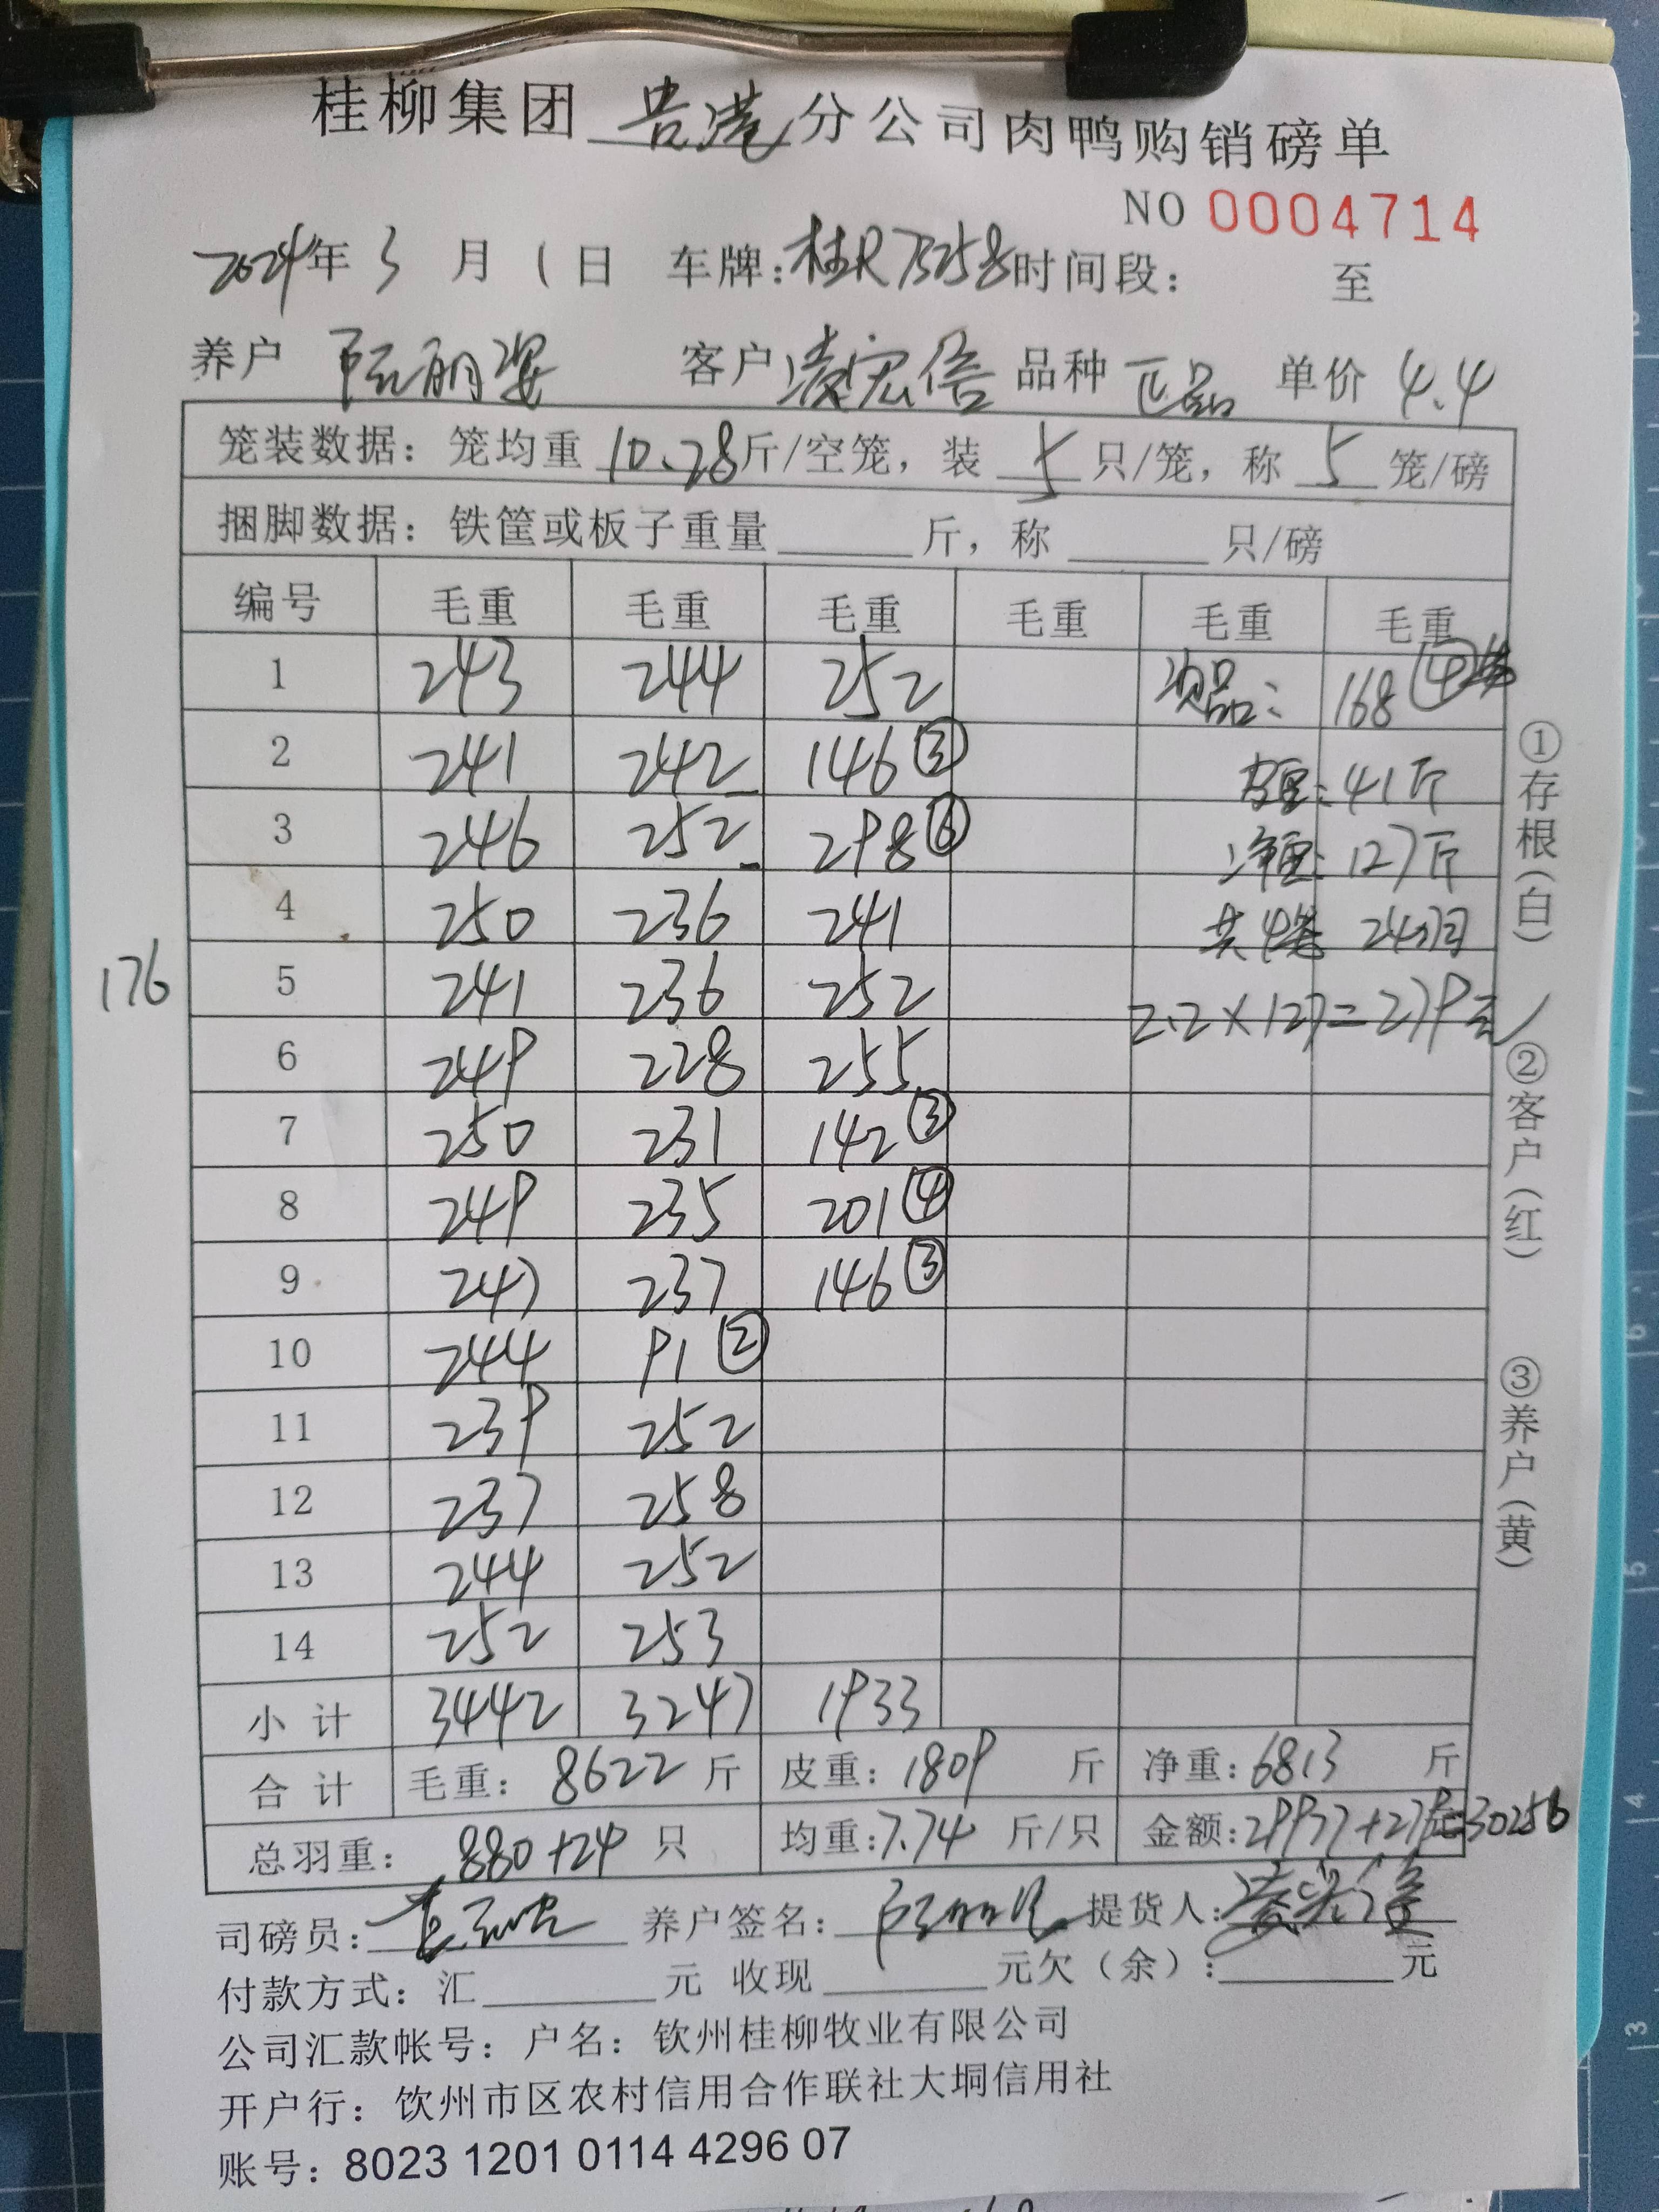 桂柳集团 贵港 分公司肉鸭购销磅单
NO 0004714
2024年 3 月 1 日 车牌:桂R73258 时间段: 至
养户 客户 凌宏信 品种 正品 单价 4.4
笼装数据：笼均重 10.28 斤/空笼，装 5 只/笼，称 5 笼/磅
捆脚数据：铁筐或板子重量 斤，称 只/磅
编号 毛重 毛重 毛重 毛重 毛重 毛重
1 243 244 252 次品: 168 ④笼
2 241 242 146 ③ 皮重: 41斤
3 246 252 298 ⑥ 净重: 127斤
4 250 236 241 共4笼 24羽
176
5 241 236 252 2.2×127=279元
6 249 228 255
7 250 231 142 ③
8 249 235 201 ④
9 247 237 146 ③
10 244 91 ②
11 239 252
12 237 258
13 244 252
14 252 253
小计 3442 3247 1933
合计 毛重: 8622 斤 皮重: 1809 斤 净重: 6813 斤
总羽重: 880+24 只 均重: 7.74 斤/只 金额: 29977+279元=30256
司磅员: 养户签名: 提货人:
付款方式: 汇 元 收现 元欠（余）: 元
公司汇款帐号: 户名: 钦州桂柳牧业有限公司
开户行: 钦州市区农村信用合作联社大垌信用社
账号: 8023 1201 0114 4296 07
①存根（白）
②客户（红）
③养户（黄）